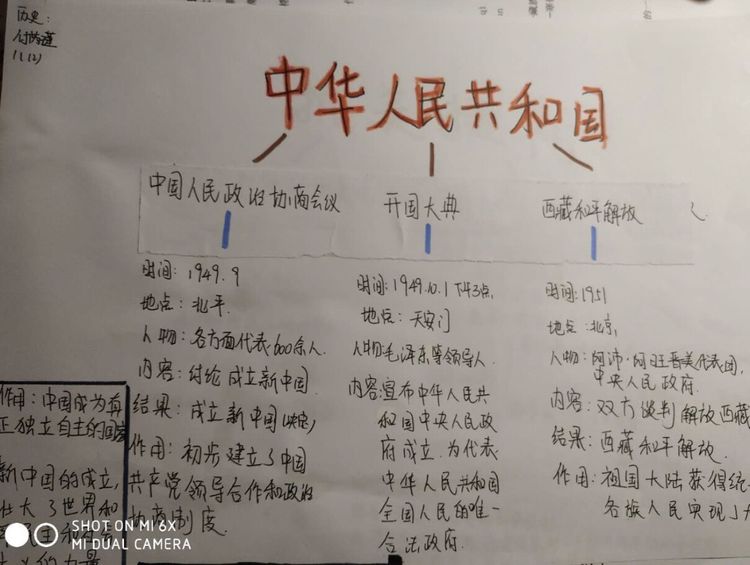 历史:
11(12)
中华人民共和国
中国人民政治协商会议
开国大典
西藏和平解放
时间: 1949.9
地点: 北平.
人物: 各方面代表600余人.
内容: 讨论成立新中国.
结果: 成立新中国
作用: 初步建立了中国
共产党领导合作和政治
协商制度.
时间: 1949.10.1 下午3点.
地点: 天安门
人物:毛泽东等领导人.
内容:宣布中华人民共
和国中央人民政
府成立.为代表
中华人民共和国
全国人民的唯一
合法政府.
时间:1951
地点: 北京.
人物: 阿沛·阿旺晋美代表团,
中央人民政府.
内容: 双方谈判解放西藏
结果: 西藏和平解放.
作用: 祖国大陆获得统
各族人民实现了
作用: 中国成为真
正独立自主的国家
新中国的成立,
壮大了世界和
民主和社会
主义的力量
SHOT ON MI 6X
MI DUAL CAMERA